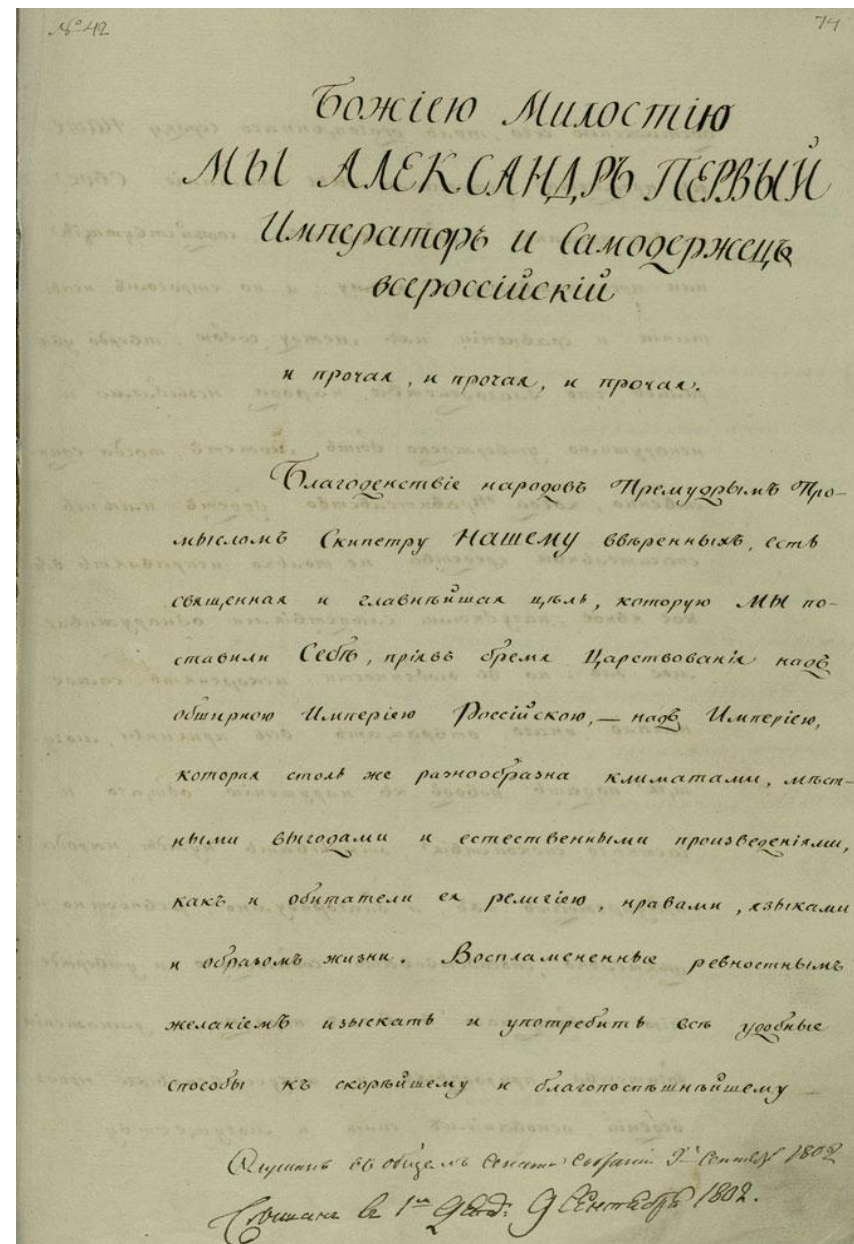 № 42
74
Божіею Милостію
МЫ АЛЕКСАНДРЪ ПЕРВЫЙ
Императоръ и Самодержецъ
всероссійскій
и прочая, и прочая, и прочая.
Благоденствіе народовъ Премудрымъ Про-
мысломъ Скипетру НАШЕМУ ввѣренныхъ, есть
священная и главнѣйшая цѣль, которую МЫ по-
ставили Себѣ, пріявъ бремя Царствованія надъ
обширною Имперіею Россійскою, — надъ Имперіею,
которая столь же разнообразна климатами, мѣст-
ными выгодами и естественными произведеніями,
какъ и обитатели ея религіею, нравами, языками
и образомъ жизни. Воспламененные ревностнымъ
желаніемъ изыскать и употребить всѣ удобные
способы къ скорѣйшему и благопоспѣшнѣйшему
Слушанъ въ общемъ Сената Собраніи 9 Сентяб 1802
Слушанъ в 1 9 Сентября 1802.